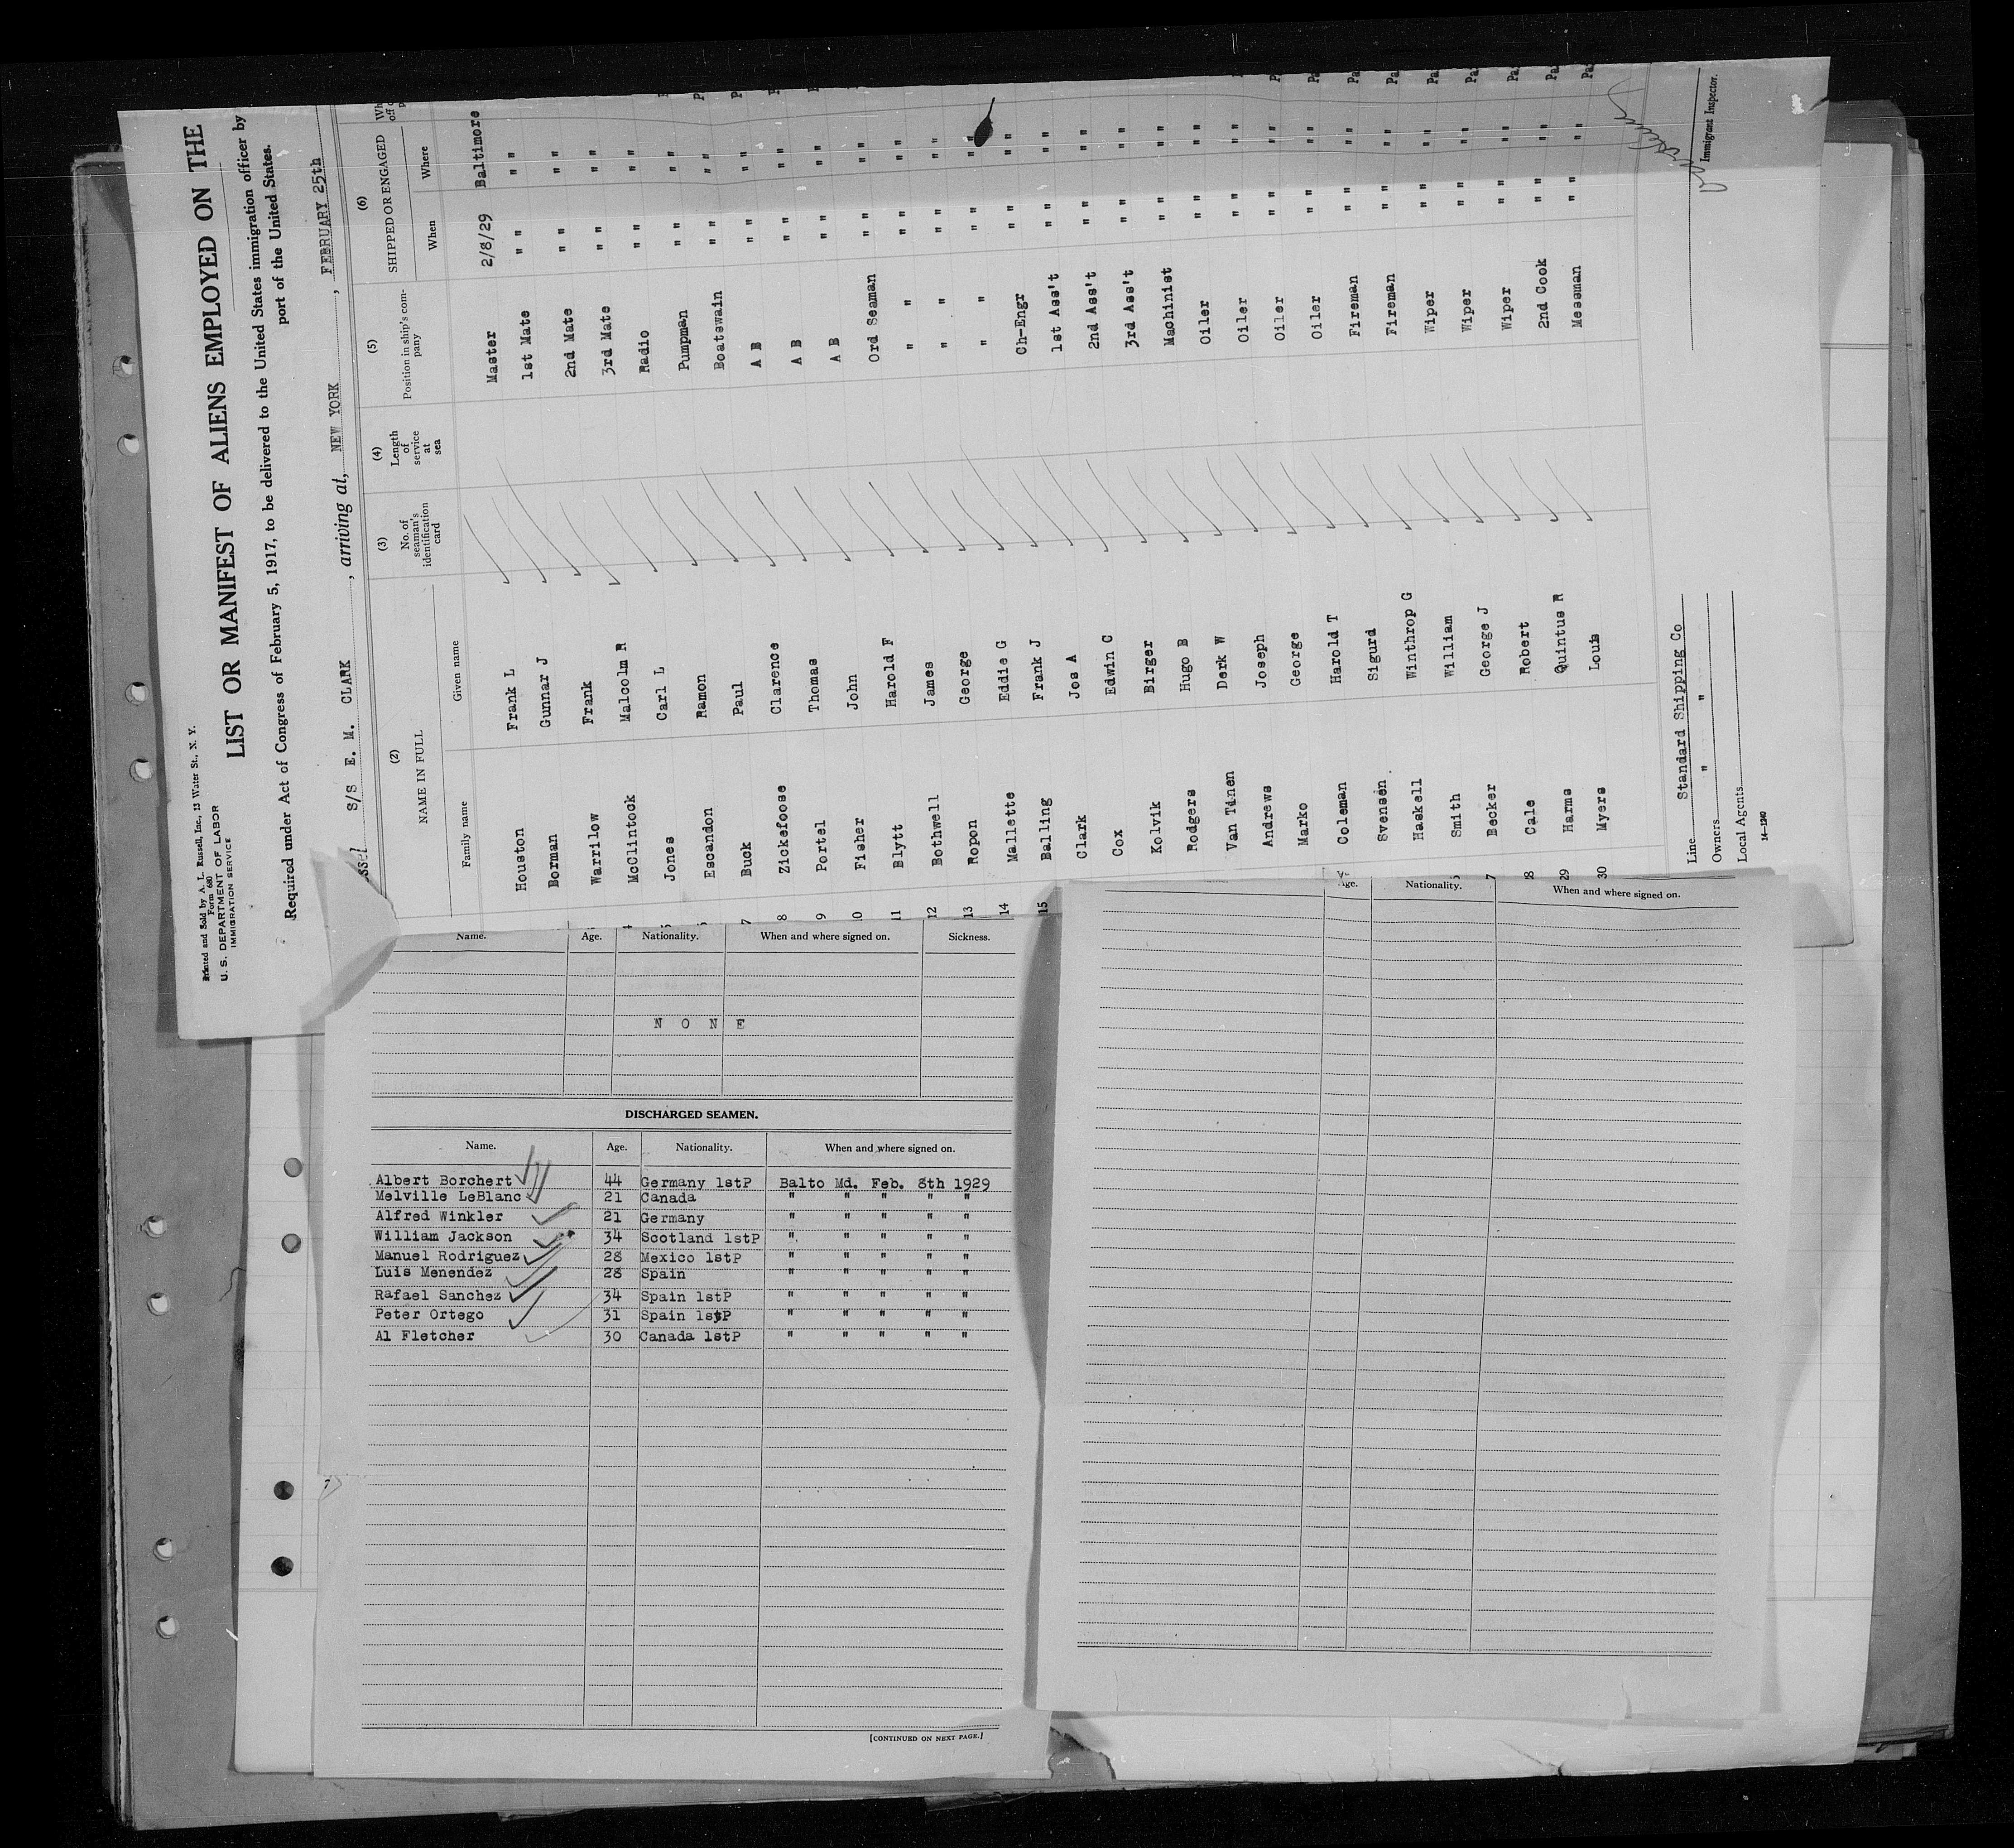 Printed and Sold by A. L. Russell, Inc., 13 Water St., N. Y.
Form 680
U. S. DEPARTMENT OF LABOR
IMMIGRATION SERVICE
LIST OR MANIFEST OF ALIENS EMPLOYED ON THE
Required under Act of Congress of February 5, 1917, to be delivered to the United States immigration officer by
port of the United States.
S/S E. M. CLARK, arriving at, NEW YORK, FEBRUARY 25th
(2) (3) (4) (5) (6)
NAME IN FULL No. of seaman's identification card Length of service at sea Position in ship's company SHIPPED OR ENGAGED
Family name Given name When Where
Houston Frank L Master 2/8/29 Baltimore
Borman Gunnar J 1st Mate " " " "
Warrilow Frank 2nd Mate " " " "
McClintock Malcolm R 3rd Mate " " " "
Jones Carl L Radio " " " "
Escandon Ramon Pumpman " " " "
7 Buck Paul Boatswain " " " "
8 Zickefoose Clarence A B " " " "
9 Portel Thomas A B " " " "
10 Fisher John A B " " " "
11 Blytt Harold F Ord Seaman " " " "
12 Bothwell James " " " " "
13 Ropon George " " " " "
14 Mallette Eddie G " " " " "
15 Balling Frank J Ch-Engr " " " "
Clark Jos A 1st Ass't " " " "
Cox Edwin C 2nd Ass't " " " "
Kolvik Birger 3rd Ass't " " " "
Rodgers Hugo B Machinist " " " "
Van Tinen Derk W Oiler " " " "
Andrews Joseph Oiler " " " "
Marko George Oiler " " " "
Coleman Harold T Oiler " " " "
Svensen Sigurd Fireman " " " "
Haskell Winthrop G Fireman " " " "
Smith William Wiper " " " "
7 Becker George J Wiper " " " "
8 Cale Robert Wiper " " " "
29 Harms Quintus R 2nd Cook " " " "
30 Myers Louis Messman " " " "
Line Standard Shipping Co
Owners " "
Local Agents
14-1240
Immigrant Inspector.
Name. Age. Nationality. When and where signed on. Sickness.
N O N E
DISCHARGED SEAMEN.
Name. Age. Nationality. When and where signed on.
Albert Borchert 44 Germany 1stP Balto Md. Feb. 8th 1929
Melville LeBlanc 21 Canada " " " " "
Alfred Winkler 21 Germany " " " " "
William Jackson 34 Scotland 1stP " " " " "
Manuel Rodriguez 28 Mexico 1stP " " " " "
Luis Menendez 28 Spain " " " " "
Rafael Sanchez 34 Spain 1stP " " " " "
Peter Ortego 31 Spain 1stP " " " " "
Al Fletcher 30 Canada 1stP " " " " "
[CONTINUED ON NEXT PAGE.]
Age. Nationality. When and where signed on.